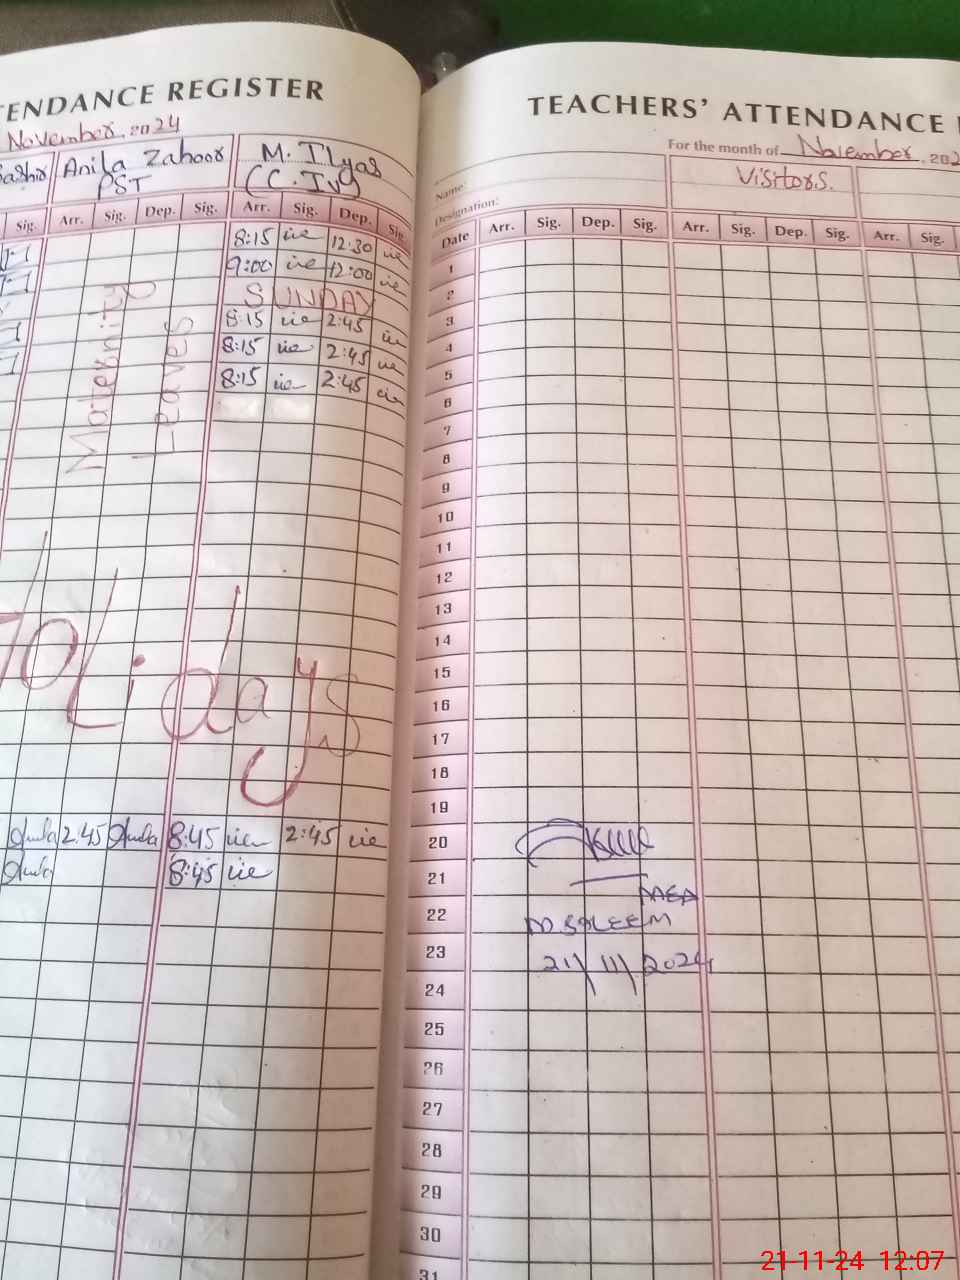 TENDANCE REGISTER
November, 2024
Anila Zahoor
PST
M. Ilyas
(C.IV)
Sig. Arr. Sig. Dep. Sig. Arr. Sig. Dep. Sig.
8:15 12:30
9:00 12:00
SUNDAY
8:15 2:45
8:15 2:45
8:15 2:45
Maternity
Leaves
Holidays
2.45 8:45 2:45
8:45
TEACHERS' ATTENDANCE
For the month of November, 202
Name:
Visitors.
Designation:
Date Arr. Sig. Dep. Sig. Arr. Sig. Dep. Sig. Arr. Sig.
1
2
3
4
5
6
7
8
9
10
11
12
13
14
15
16
17
18
19
20
21
MEA
22
M SALEEM
23
21/11/2024
24
25
26
27
28
29
30
31
21-11-24 12:07